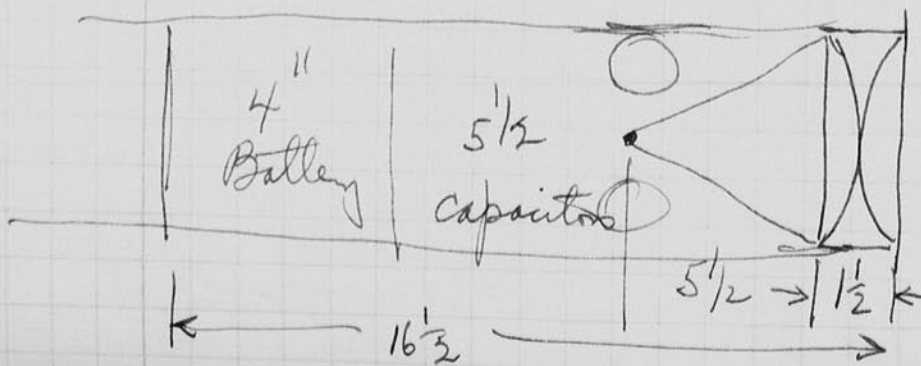 4"
Battery
5 1/2
capacitors
5 1/2
1 1/2
16 1/2